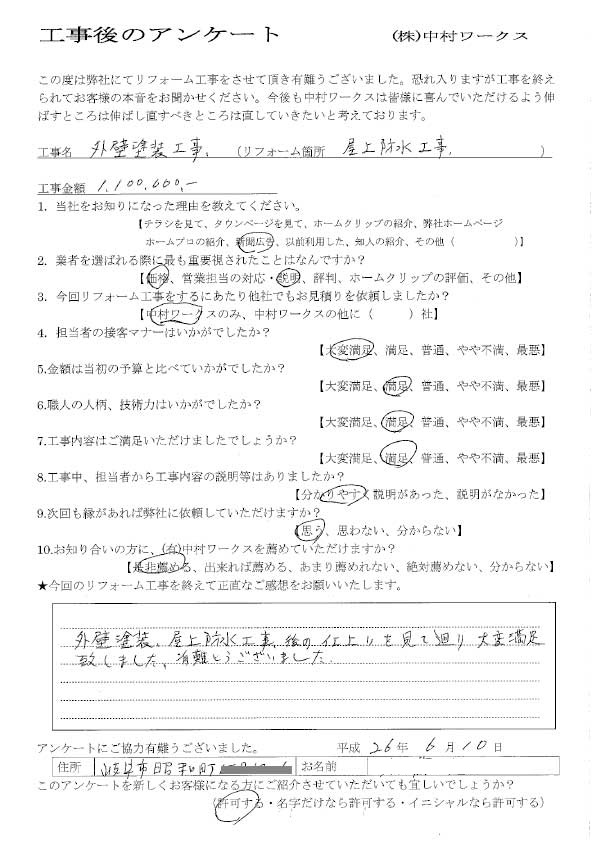 工事後のアンケート　(株)中村ワークス
この度は弊社にてリフォーム工事をさせて頂き有難うございました。恐れ入りますが工事を終え
られてお客様の本音をお聞かせください。今後も中村ワークスは皆様に喜んでいただけるよう伸
ばすところは伸ばし直すべきところは直していきたいと考えております。
工事名　外壁塗装工事、　(リフォーム箇所　屋上防水工事、　)
工事金額　1,100,000,-
1. 当社をお知りになった理由を教えてください。
【チラシを見て、タウンページを見て、ホームクリップの紹介、弊社ホームページ
ホームプロの紹介、新聞広告、以前利用した、知人の紹介、その他（　　）】
2. 業者を選ばれる際に最も重要視されたことはなんですか？
【価格、営業担当の対応・説明、評判、ホームクリップの評価、その他】
3. 今回リフォーム工事をするにあたり他社でもお見積りを依頼しましたか？
【中村ワークスのみ、中村ワークスの他に（　　）社】
4. 担当者の接客マナーはいかがでしたか？
【大変満足、満足、普通、やや不満、最悪】
5.金額は当初の予算と比べていかがでしたか？
【大変満足、満足、普通、やや不満、最悪】
6.職人の人柄、技術力はいかがでしたか？
【大変満足、満足、普通、やや不満、最悪】
7.工事内容はご満足いただけましたでしょうか？
【大変満足、満足、普通、やや不満、最悪】
8.工事中、担当者から工事内容の説明等はありましたか？
【分かりやすく説明があった、説明がなかった】
9.次回も縁があれば弊社に依頼していただけますか？
【思う、思わない、分からない】
10.お知り合いの方に、(有)中村ワークスを薦めていただけますか？
【是非薦める、出来れば薦める、あまり薦めれない、絶対薦めない、分からない】
★今回のリフォーム工事を終えて正直なご感想をお願いいたします。
外壁塗装、屋上防水工事、後の仕上りを見て廻り大変満足
致しました、有難とうございました.
アンケートにご協力有難うございました。　平成 26年 6月10日
住所　岐阜市昭和町　お名前
このアンケートを新しくお客様になる方にご紹介させていただいても宜しいでしょうか？
（許可する・名字だけなら許可する・イニシャルなら許可する）